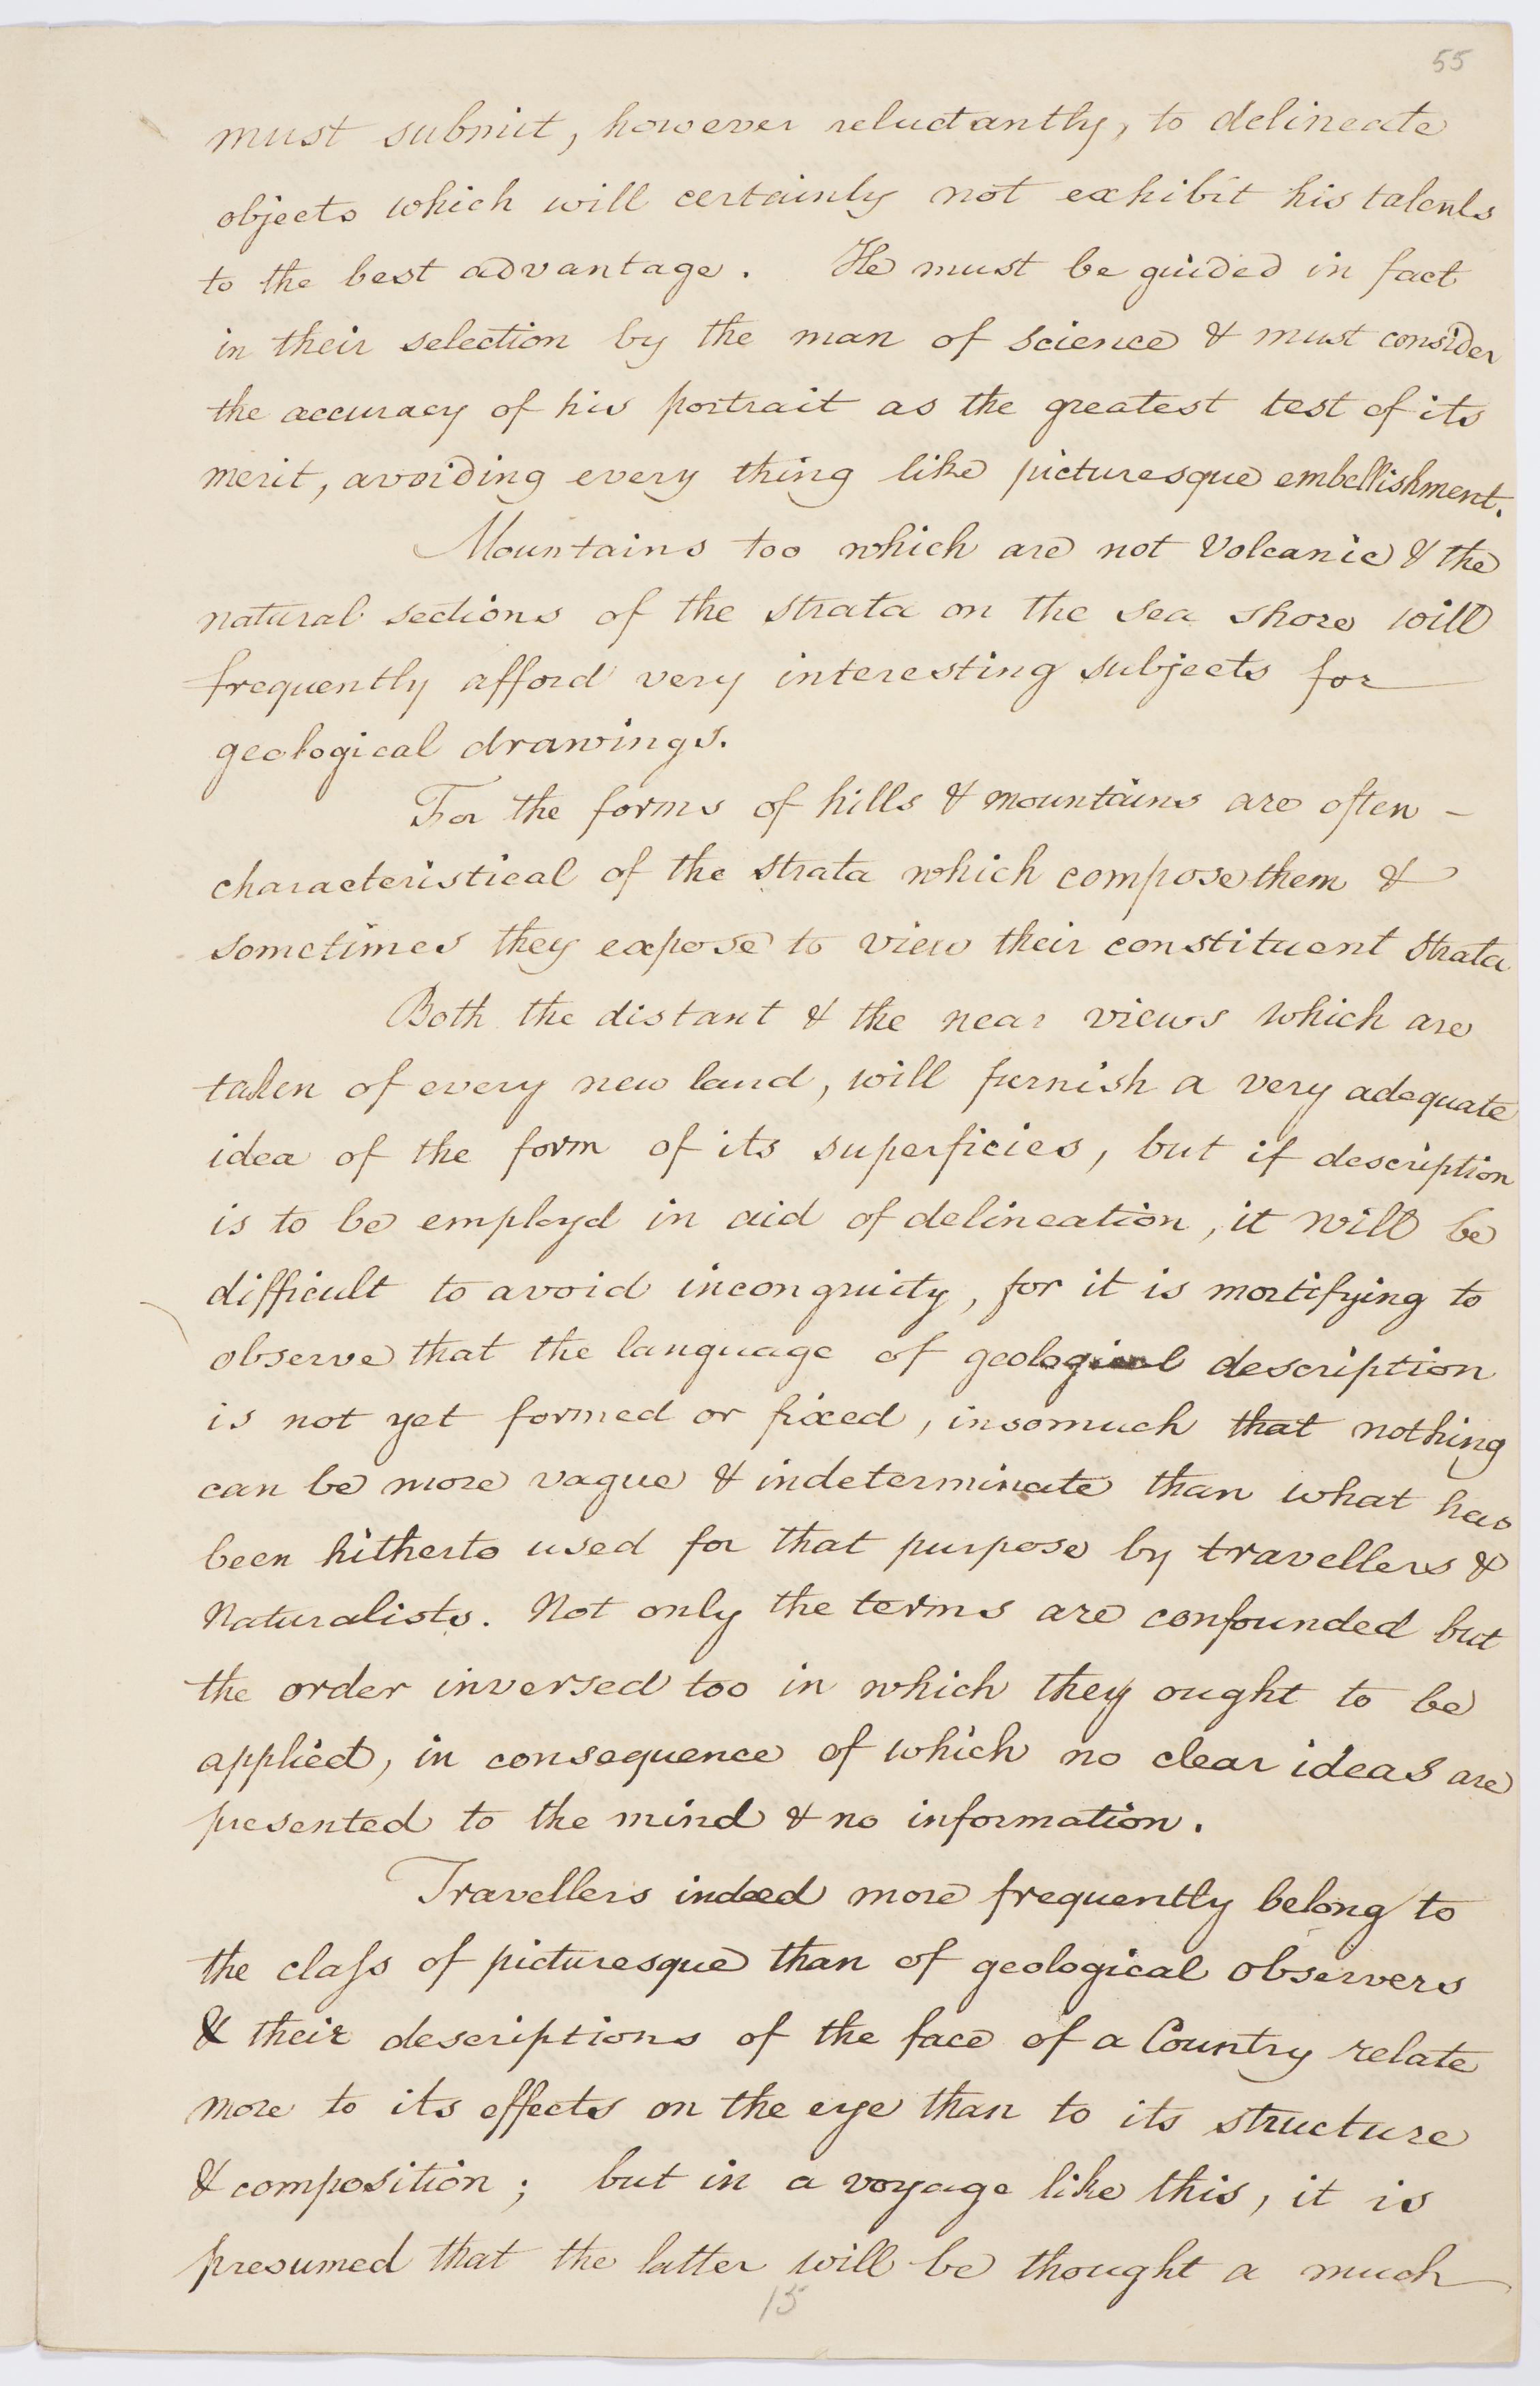 55
must submit, however reluctantly, to delineate
objects which will certainly not exhibit his talents
to the best advantage. He must be guided in fact
in their selection by the man of science & must consider
the accuracy of his portrait as the greatest test of its
merit, avoiding every thing like picturesque embellishment.
Mountains too which are not Volcanic & the
natural sections of the strata on the sea shore will
frequently afford very interesting subjects for
geological drawings.
For the forms of hills & mountains are often -
characteristical of the strata which compose them &
sometimes they expose to view their constituent strata
Both the distant & the near views which are
taken of every new land, will furnish a very adequate
idea of the form of its superficies, but if description
is to be employd in aid of delineation, it will be
difficult to avoid incongruity, for it is mortifying to
observe that the language of geological description
is not yet formed or fixed, insomuch that nothing
can be more vague & indeterminate than what has
been hitherto used for that purpose by travellers &
Naturalists. Not only the terms are confounded but
the order inversed too in which they ought to be
applied, in consequence of which no clear ideas are
presented to the mind & no information.
Travellers indeed more frequently belong to
the claſs of picturesque than of geological observers
& their descriptions of the face of a Country relate
more to its effects on the eye than to its structure
& composition; but in a voyage like this, it is
presumed that the latter will be thought a much
15